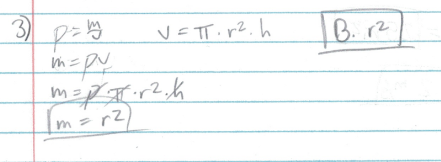 3) p = m/v   v = π · r² · h   B. r²
m = pv
m = p π · r² · h
m = r²